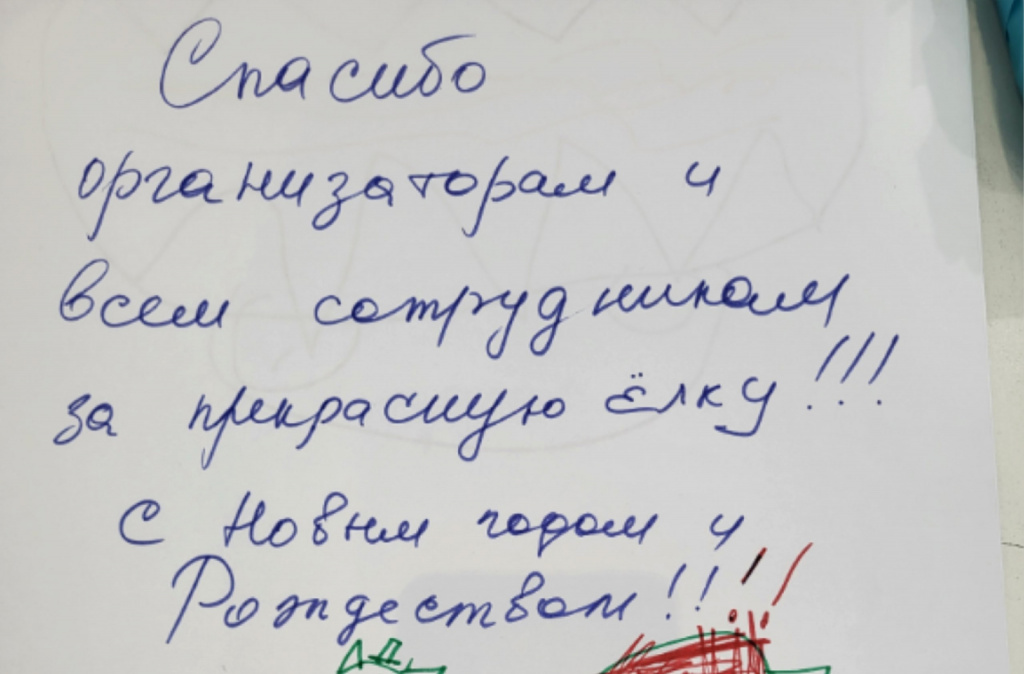 Спасибо
организаторам и
всем сотрудникам
за прекрасную ёлку!!!
С Новым годом и
Рождеством!!!!